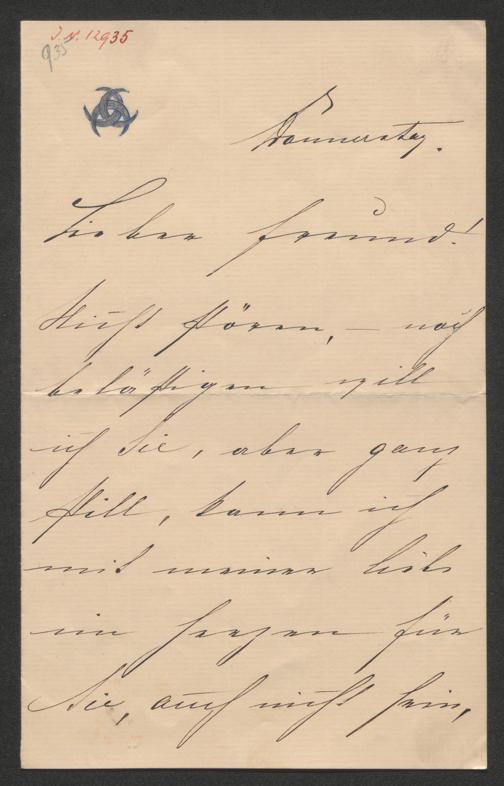 I. N. 12935
935
Donnerstag.
Lieber Freund!
Nicht stören, – noch
belästigen will
ich Sie, aber ganz
still, kann ich
mit meiner Liebe
im Herzen für
Sie, auch nicht sein,